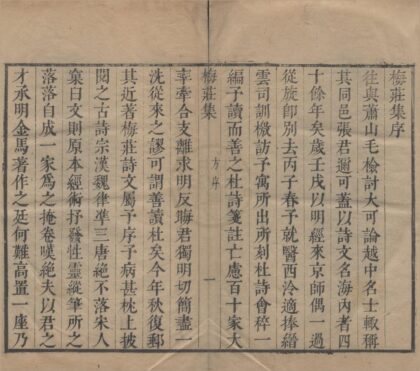 梅莊集序
往與蕭山毛檢討大可論越中名士輒稱
其同邑張君邇可蓋以詩文名海內者四
十餘年矣歲壬戌以明經來京師偶一過
從旋卽別去丙子春予就醫西泠適捧緇
雲司訓檄訪予寓所出所刻杜詩會稡一
編予讀而善之杜詩箋註亡慮百十家大
梅莊集
序
一
率牽合支離求明反晦君獨明切簡盡一
洗從來之謬可謂善讀杜矣今年秋復郵
其近著梅莊詩文屬予序予病甚枕上披
閱之古詩宗漢魏律準三唐絕不落宋人
窠臼文則原本經術抒發性靈縱筆所之
落落自成一家爲之掩卷嘆絕夫以君之
才承明金馬著作之廷何難高置一座乃